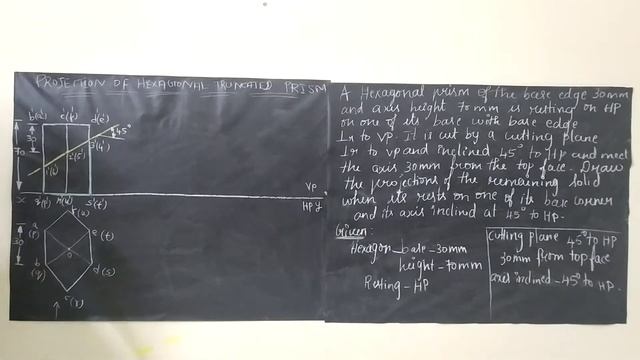 PROJECTION OF HEXAGONAL TRUNCATED PRISM
b'(a') c'(f') d'(e')
45°
30
70
3'(4')
2'(5')
1'(6')
VP
X
HP Y
s'(t')
f(u)
a
(p)
e(t)
30
o
b
(q)
d(s)
c(r)
A Hexagonal prism of the base edge 30mm
and axis height 70mm is resting on HP
on one of its base with base edge
Lr to VP. It is cut by a cutting plane
Lr to VP and inclined 45° to HP and meet
the axis 30mm from the top face. Draw
the projections of the remaining solid
when its rests on one of its base corner
and its axis inclind at 45° to HP.
Given:
Hexagon - base - 30mm
height - 70mm
Resting - HP
cutting plane 45° to HP
30mm from top face
axis inclined - 45° to HP.